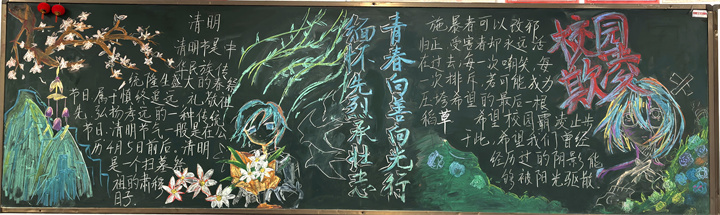 清明
清明节是中
华民族传
统隆重盛大的春祭
节日,属于慎终追远、礼敬祖
先、弘扬孝道的一种传统
节日。清明节气一般是在公
历4月5日前后。清明
是一个扫墓祭
祖的肃穆
日子。
青春向善向光行
缅怀先烈承壮志
校园
欺凌
施暴者可以改邪
归正,受害者却永远活
在过去,每一次嘲笑,每
一次排斥,若可能成为
压垮希望的最后一根
稻草。希望校园霸凌止步
于此,希望我们曾经
经历过的阴影能
够被阳光驱散。